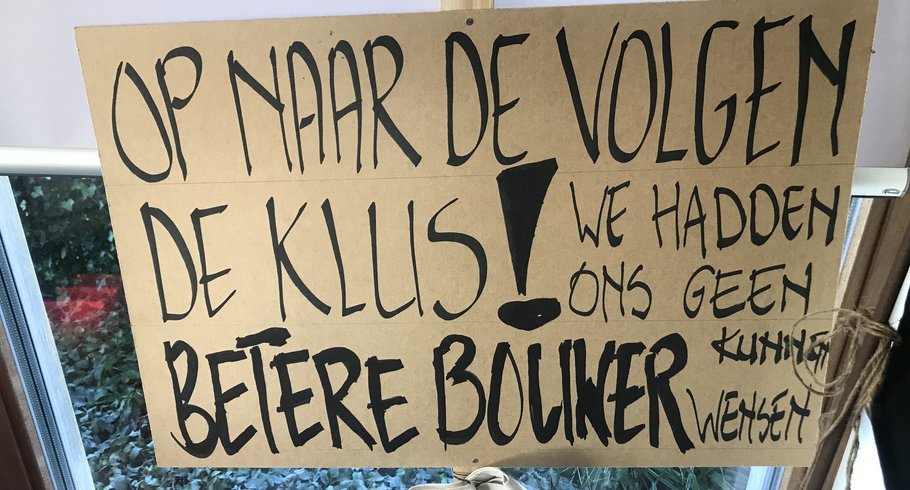 OP NAAR DE VOLGEN
DE KLUS! WE HADDEN
ONS GEEN
BETERE BOUWER KUNNEN
WENSEN